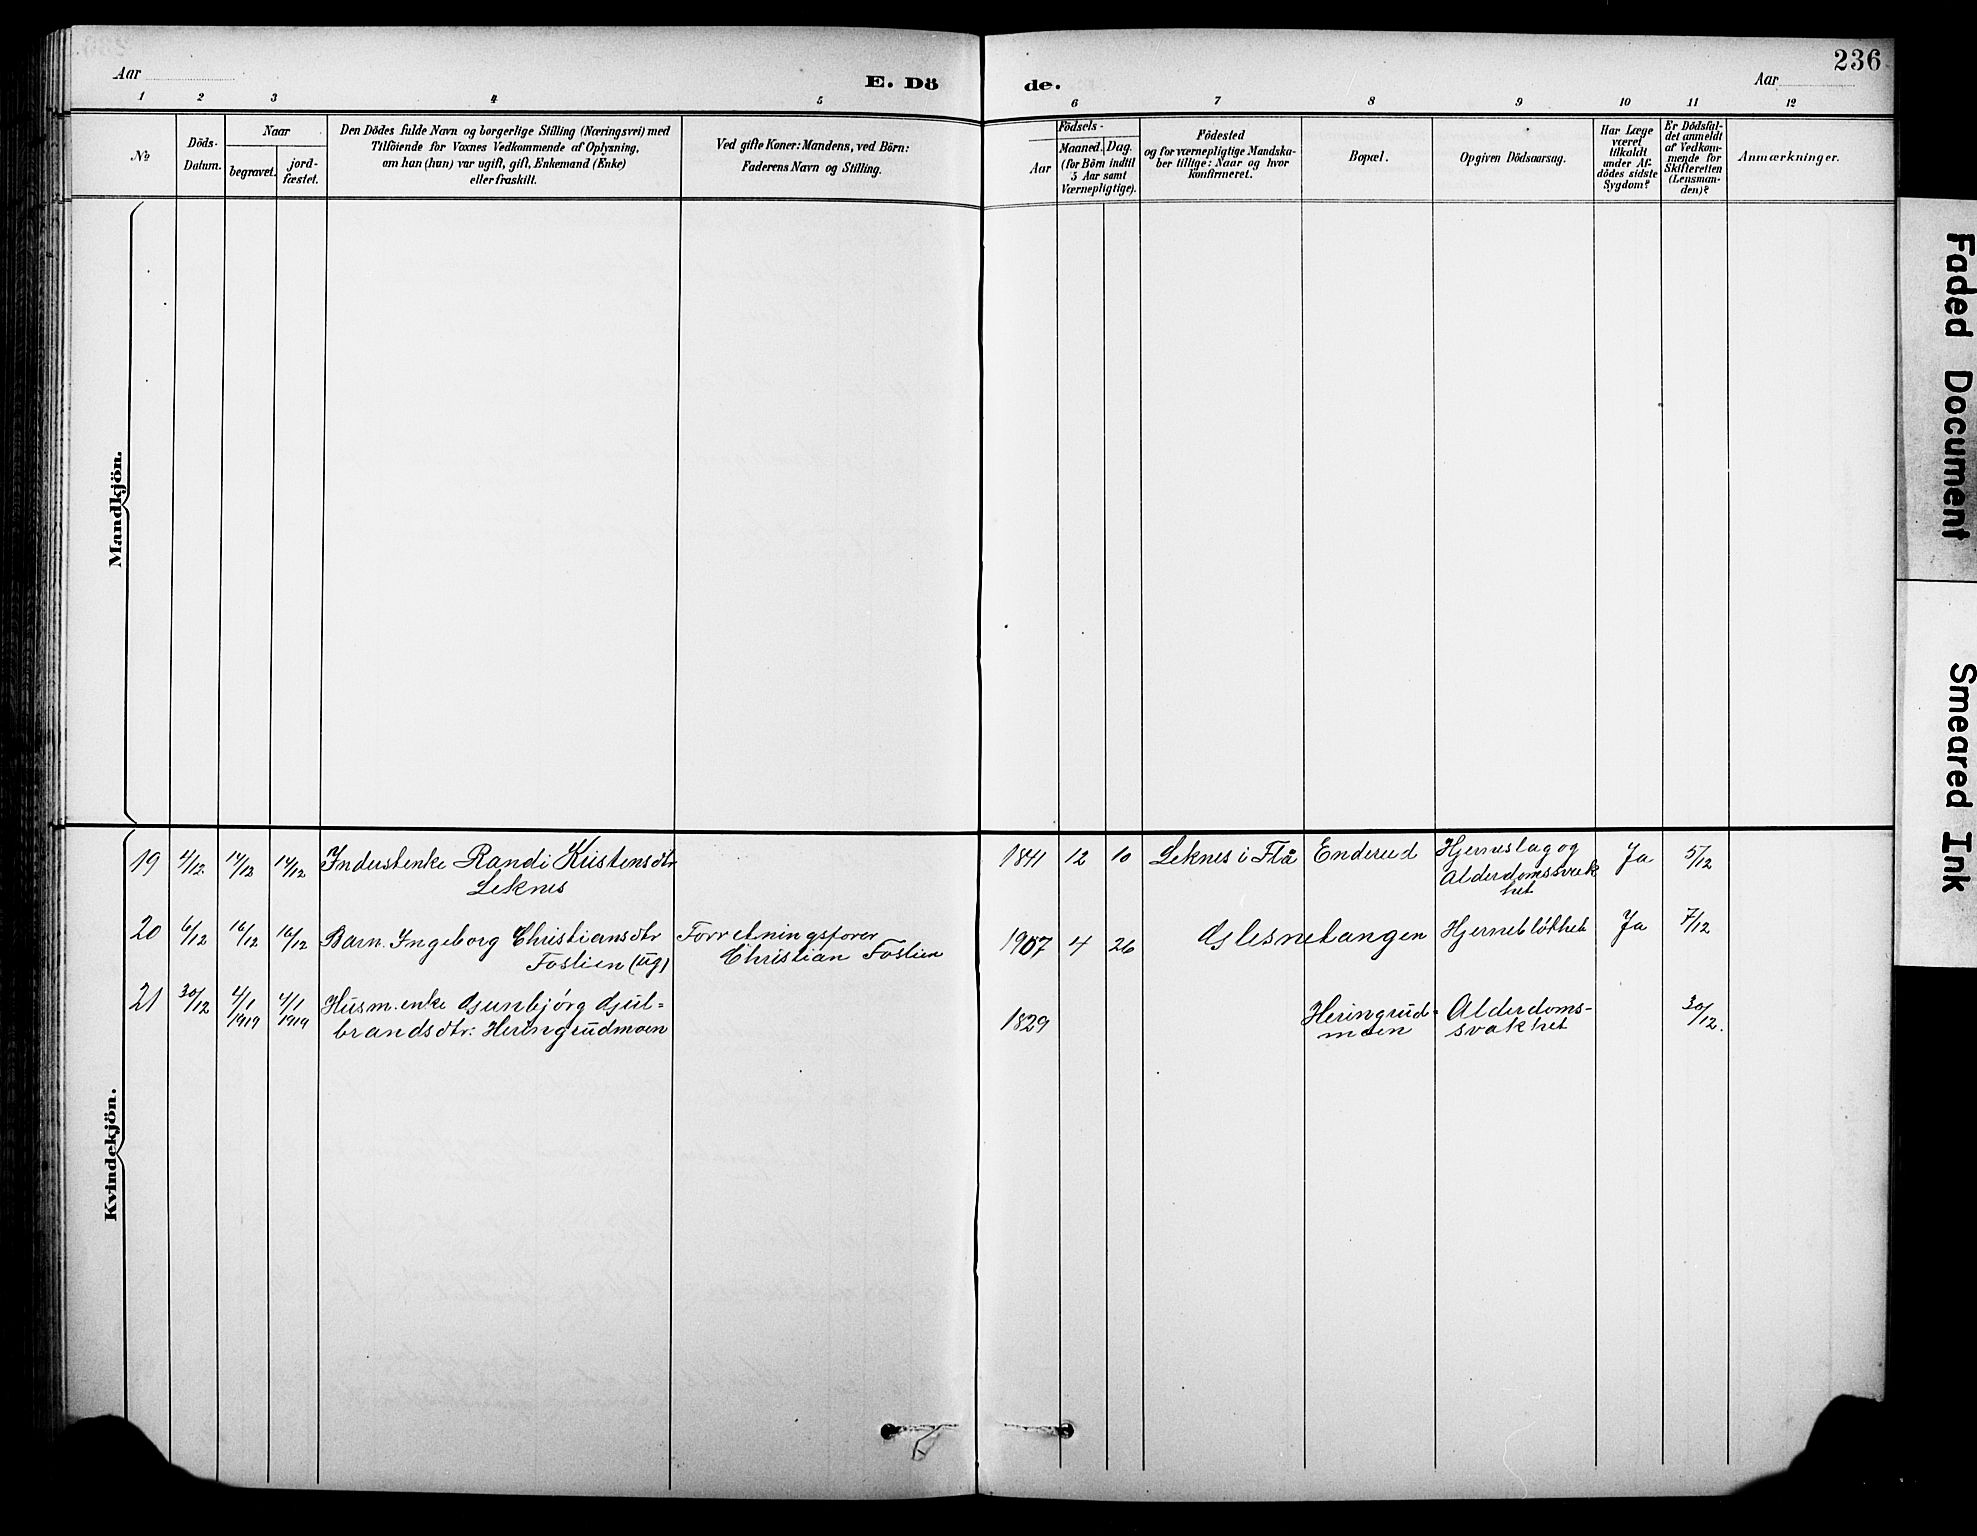 236
Aar
E. Dö
de.
Aar
1 2 3 4 5 6 7 8 9 10 11 12
№
Döds-
Datum.
Naar
begravet.
jord-
fæstet.
Den Dödes fulde Navn og borgerlige Stilling (Næringsvei) med
Tilföiende for Voxnes Vedkommende af Oplysning,
om han (hun) var ugift, gift, Enkemand (Enke)
eller fraskilt.
Ved gifte Koner: Mandens, ved Börn:
Faderens Navn og Stilling.
Födsels-
Aar
Maaned. Dag.
(for Börn indtil
5 Aar samt
Værnepligtige).
Födested
og for værnepligtige Mandska-
ber tillige: Naar og hvor
konfirmeret.
Bopæl.
Opgiven Dödsaarsag.
Har Læge
været
tilkaldt
under Af-
dödes sidste
Sygdom?
Er Dödsfal-
det anmeldt
af Vedkom-
mende for
Skifteretten
(Lensman-
den)?
Anmærkninger.
Mandkjön.
Kvindekjön.
19 4/12. 14/12 14/12 Inderstenke Randi Kristensdtr 1841 12 10 Leknes i Flå Enderud Hjerneslag og Ja 5/12
Leknes Alderdomssvak
het
20 6/12 16/12 16/12 Barn. Ingeborg Christiansdtr Forretningsfører 1907 4 26 Glesnetangen Hjernebløthet Ja 7/12
Foslien (ug) Christian Foslien
21 30/12 4/1 4/1 Husm.enke Gunbjørg Gul= Heringrud= Alderdoms- 30/12.
1919 1919 brandsdtr: Heringrudmoen 1829 moen svakhet
Faded Document
Smeared Ink